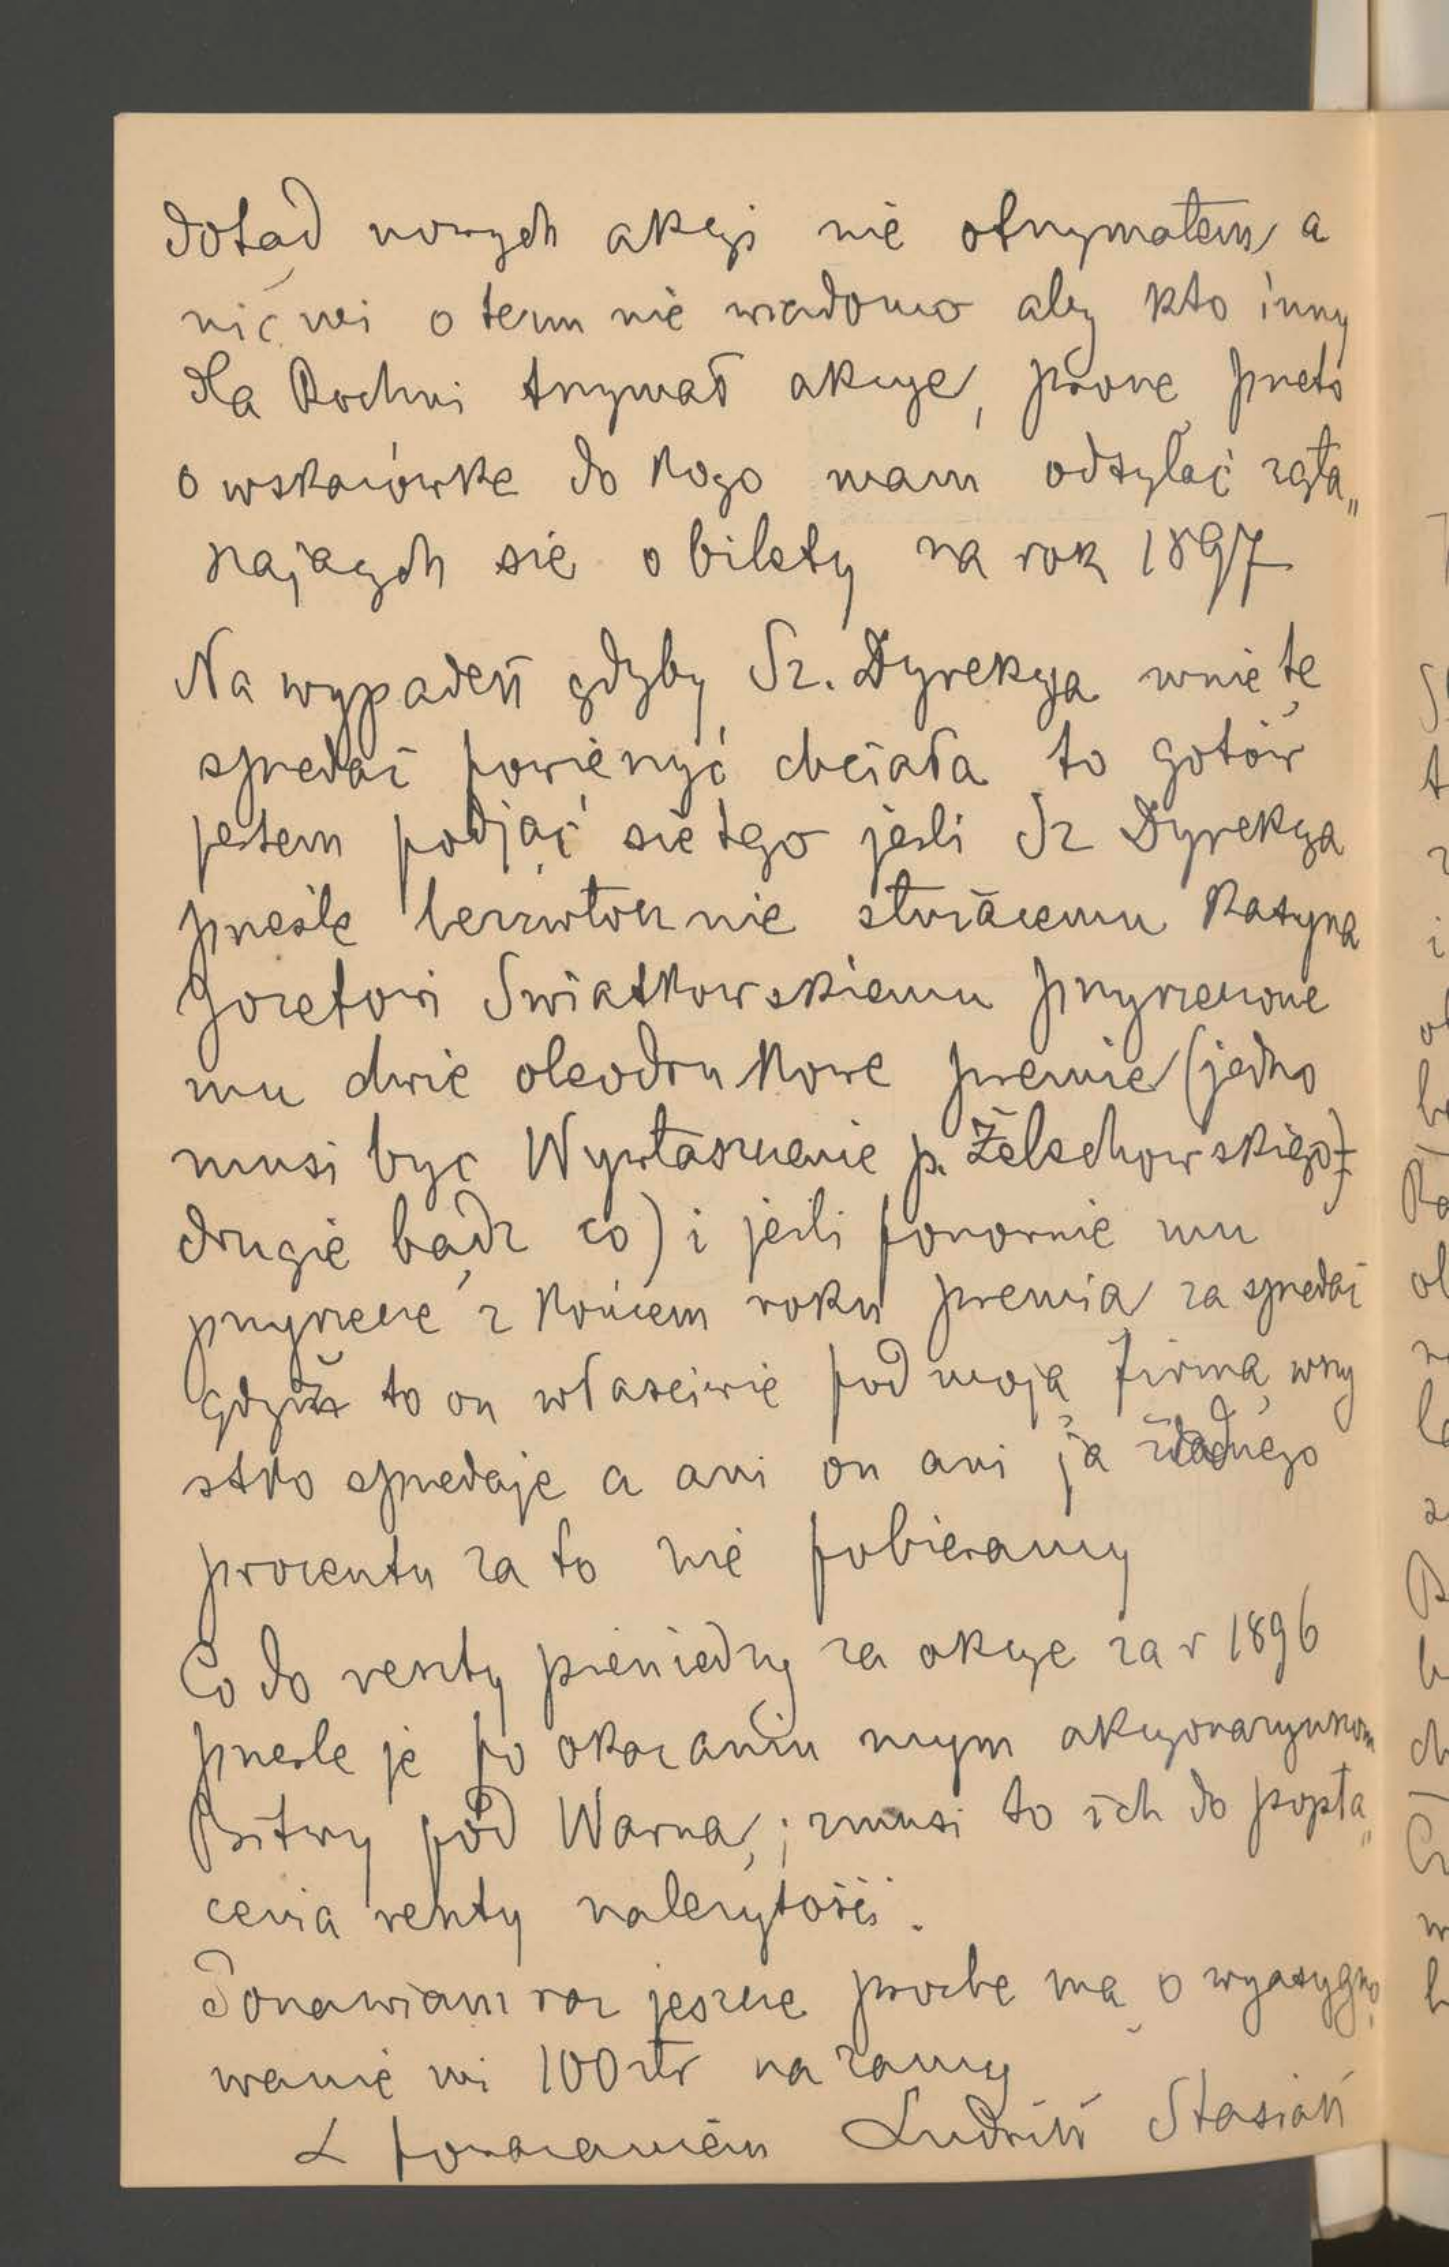 dotąd nowych akcyj nie otrzymałem a
nic mi o tem nie wiadomo aby kto inny
dla Bochni trzymał akcye, proszę przeto
o wskazówkę do kogo mam odsyłać zgła„
szających się o bilety na rok 1897
Na wypadek gdyby Sz. Dyrekcya mnie tę
sprzedaż powierzyć chciała to gotów
jestem podjąć się tego jeśli Sz Dyrekcya
prześle bezzwłocznie służącemu Kasyna
Józefowi Swiatkowskiemu przyrzeczone
mu dwie oleodrukowe premie (jedno
musi być Wywłaszczenie p. Żelechowskiego
drugie bądź co) i jeśli ponownie mu
przyrzecze z końcem roku premia za sprzedaż
gdyż to on właściwie pod moją firmą wszy
stko sprzedaje a ani on ani ja żadnego
procentu za to nie pobieramy
Co do reszty pieniędzy za akcye za r 1896
prześle je po okazaniu mym akcyonaryuszom
Bitwy pod Warną, ; zmusi to ich do popła„
cenia reszty należytości.
Ponawiam raz jeszcze prośbę mą o wyasygno„
wanie mi 100 złr na ramy
Z poważaniem Ludwik Stasiak